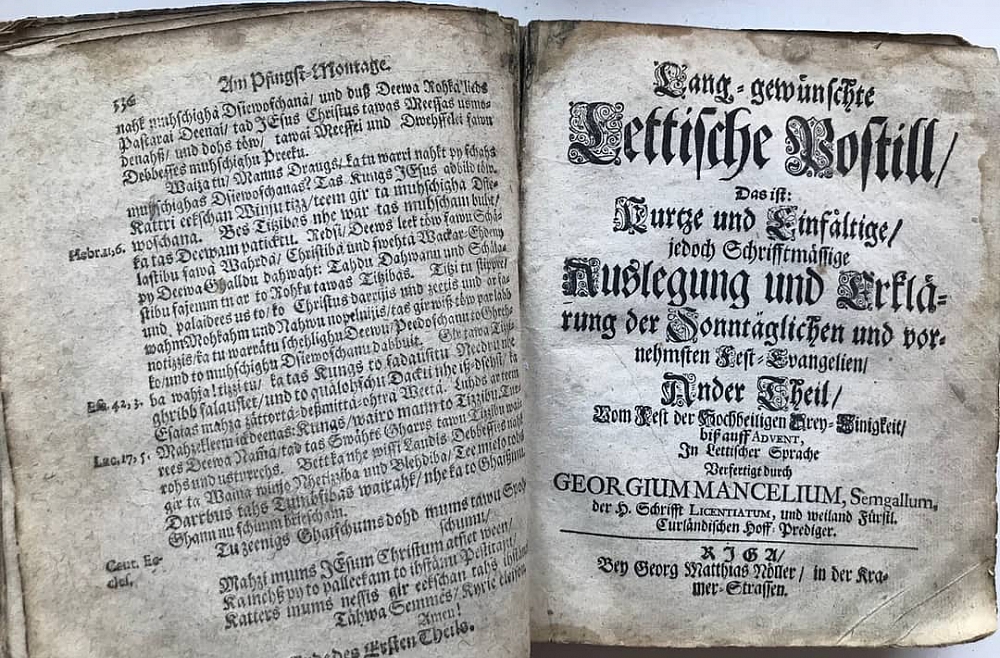 536
Am Pfingst-Montage.
nahk muhschigha Dsiewoschana/ und duß Deewa Rohka lieds
Pastarai Deenai/ tad JEsus Christus tawas Meesas usmo-
denahß/ und dohs töw/ tawai Meesei und Dwehselei sawu
Debbesses muhschighu Preeku.
Waiza tu/ Manns Draugs/ ka tu warri nahkt py schahs
muhschighas Dsiewoschanas? Tas Kungs JEsus adbild töw.
Kattri eekschan Winju tizz/ teem gir ta muhschigha Dsie-
woschana. Bes Tizzibas nhe war tas muhscham buht/
Hebr. 11, 6.
ka tas Deewam paticktu. Redsi/ Deews leek töw sawu Schä-
lastibu sawa Wahrda/ Christiba und swehta Wackar-Ehdeny
py Deewa Ghalldu dahwaht: Tahdu Dahwanu und Schäla-
stibu sajemm tu ar to Rohku tawas Tizzibas. Tizzi tu stippret
und palaidees us to/ ko Christus darrijis und zeetis
wahm Mohkahm und Nahwu nopelnijis/ tas gir wiß töw par labb
notizzis/ ka tu warrätu schehlighu Deewu/ Peedoschanu to Ghreh-
ko/ und to muhschighu Dsiewoschanu dabbuit.
Es. 42, 3.
ba wahja! tizzi tu/ ka tas Kungs to sadausitu Needru nhe
ghribb salauset/ und to quälojschu Dackti nhe isdsehst/ ka
Esaias mahza zättortä-deßmittä-ohträ Weetä. Luhds ar teem
Luc. 17, 5.
Mahzekleem ickdeenas: Kungs/ wairo mann to Tizzibu. Tur-
rees Deewa Nama/ tad tas Swähts Gharrs tawu Tizzibu wai-
rohs und usturrehs. Bett ka nhe wissi Laudis Debbesses nahk
gir ta Waina winjo Nhetizziba und Blehdiba/ Tee mielo to
Darrbus tahs Tumbsibas wairahk/ nhe ka to Ghaißum.
Ghann nu schimm briescham.
Tu zeenigs Ghaischums dohd mums tawu
schumu/
Cant. Ec-
cles.
Mahzi mums JEsum Christum atsiet ween/
Kamehß py to palleekam to ihstänu Pestitaju/
Katters mums nessis gir eekschan tahs ihstenas
Tähwa Semmes/ Kyrie eleison.
Amen!
Ende des Ersten Theils.
Lang-gewünschte
Lettische Postill/
Das ist:
Kurtze und Einfältige/
jedoch Schrifftmässige
Auslegung und Erklä-
rung der Sonntäglichen und vor-
nehmsten Fest-Evangelien/
Ander Theil/
Vom Fest der Hochheiligen Drey-Einigkeit/
biß auff ADVENT,
In Lettischer Sprache
Verfertigt durch
GEORGIUM MANCELIUM, Semgallum,
der H. Schrifft LICENTIATUM, und weiland Fürstl.
Curländischen Hoff-Prediger.
RIGA/
Bey Georg Matthias Nöller/ in der Kra-
mer-Strassen.